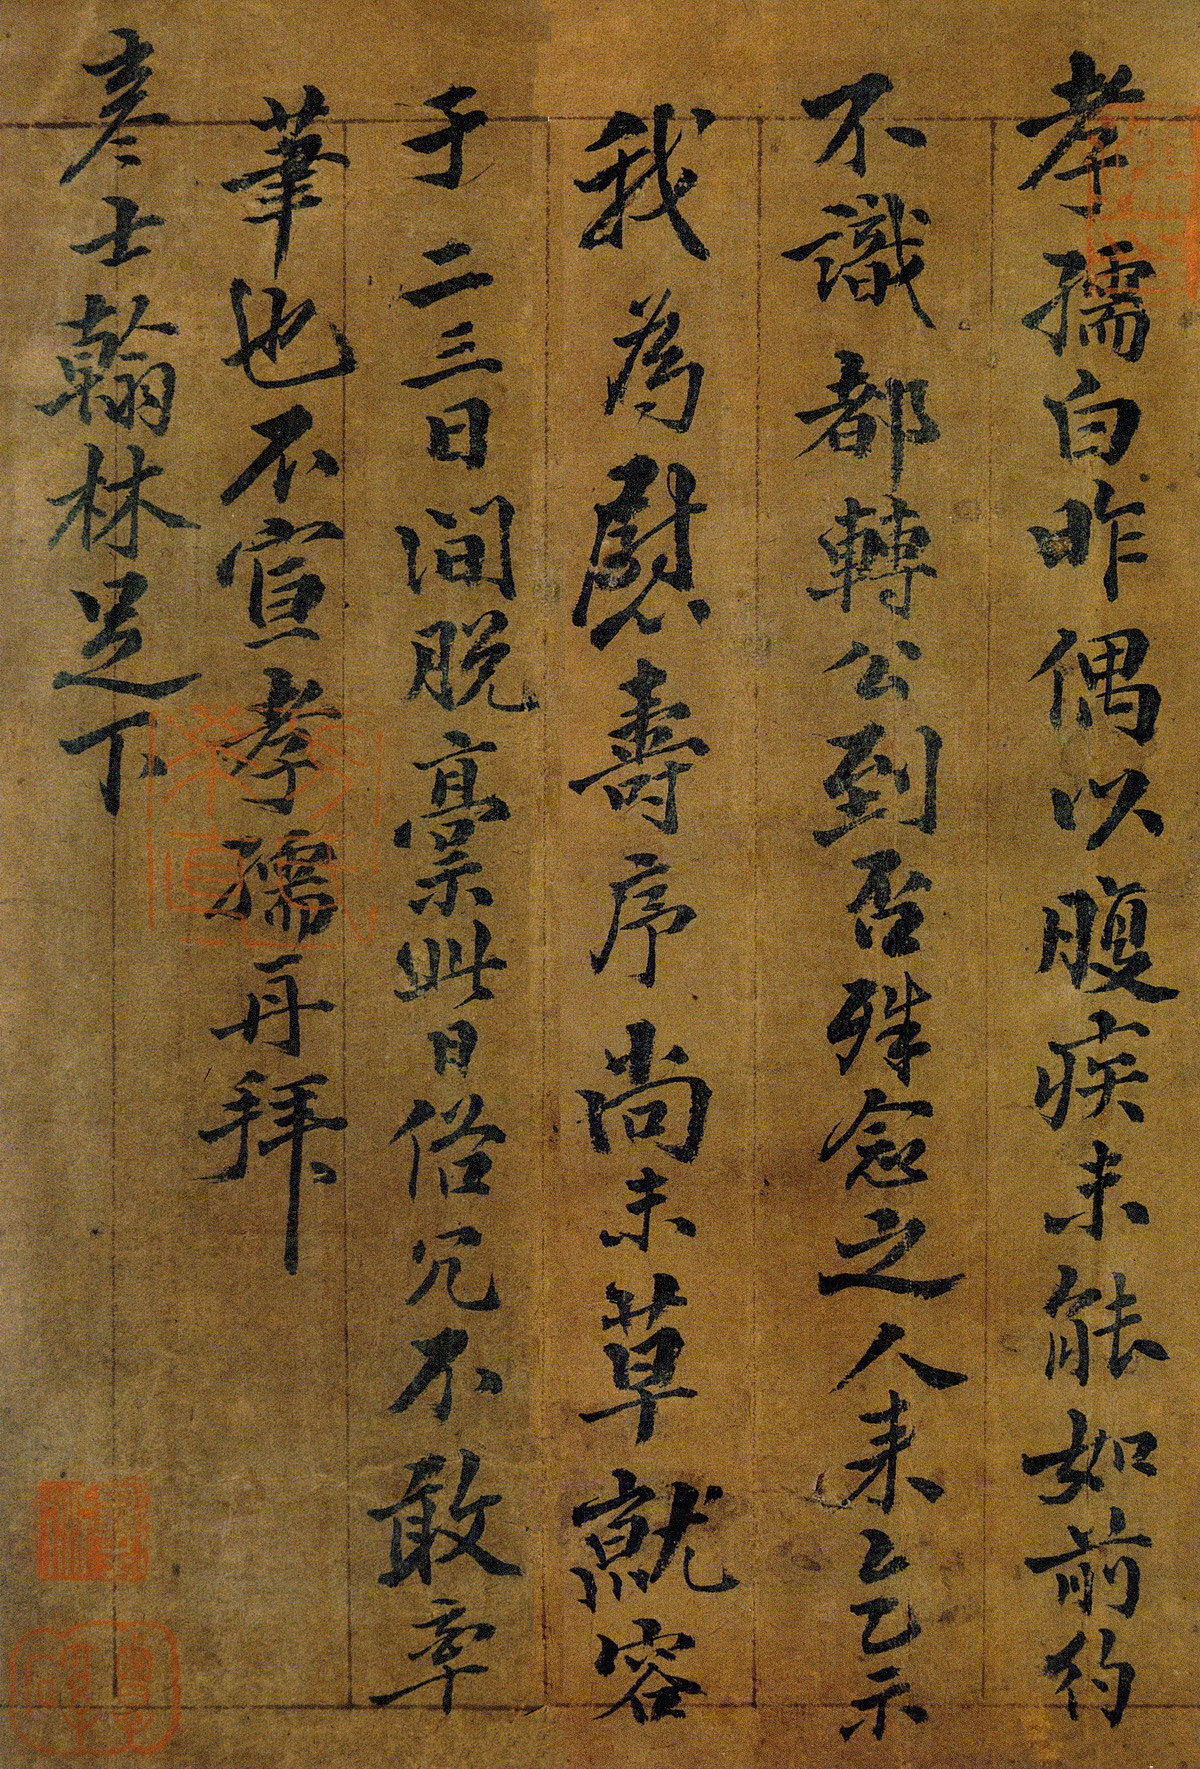 孝孺白昨偶以腹疾未能如前約
不識都轉公到否殊念之人来乞乞示
我為慰壽序尚未草就容
于二三日間脱稾此日俗冗不敢率
筆也不宣孝孺再拜
彦士翰林足下